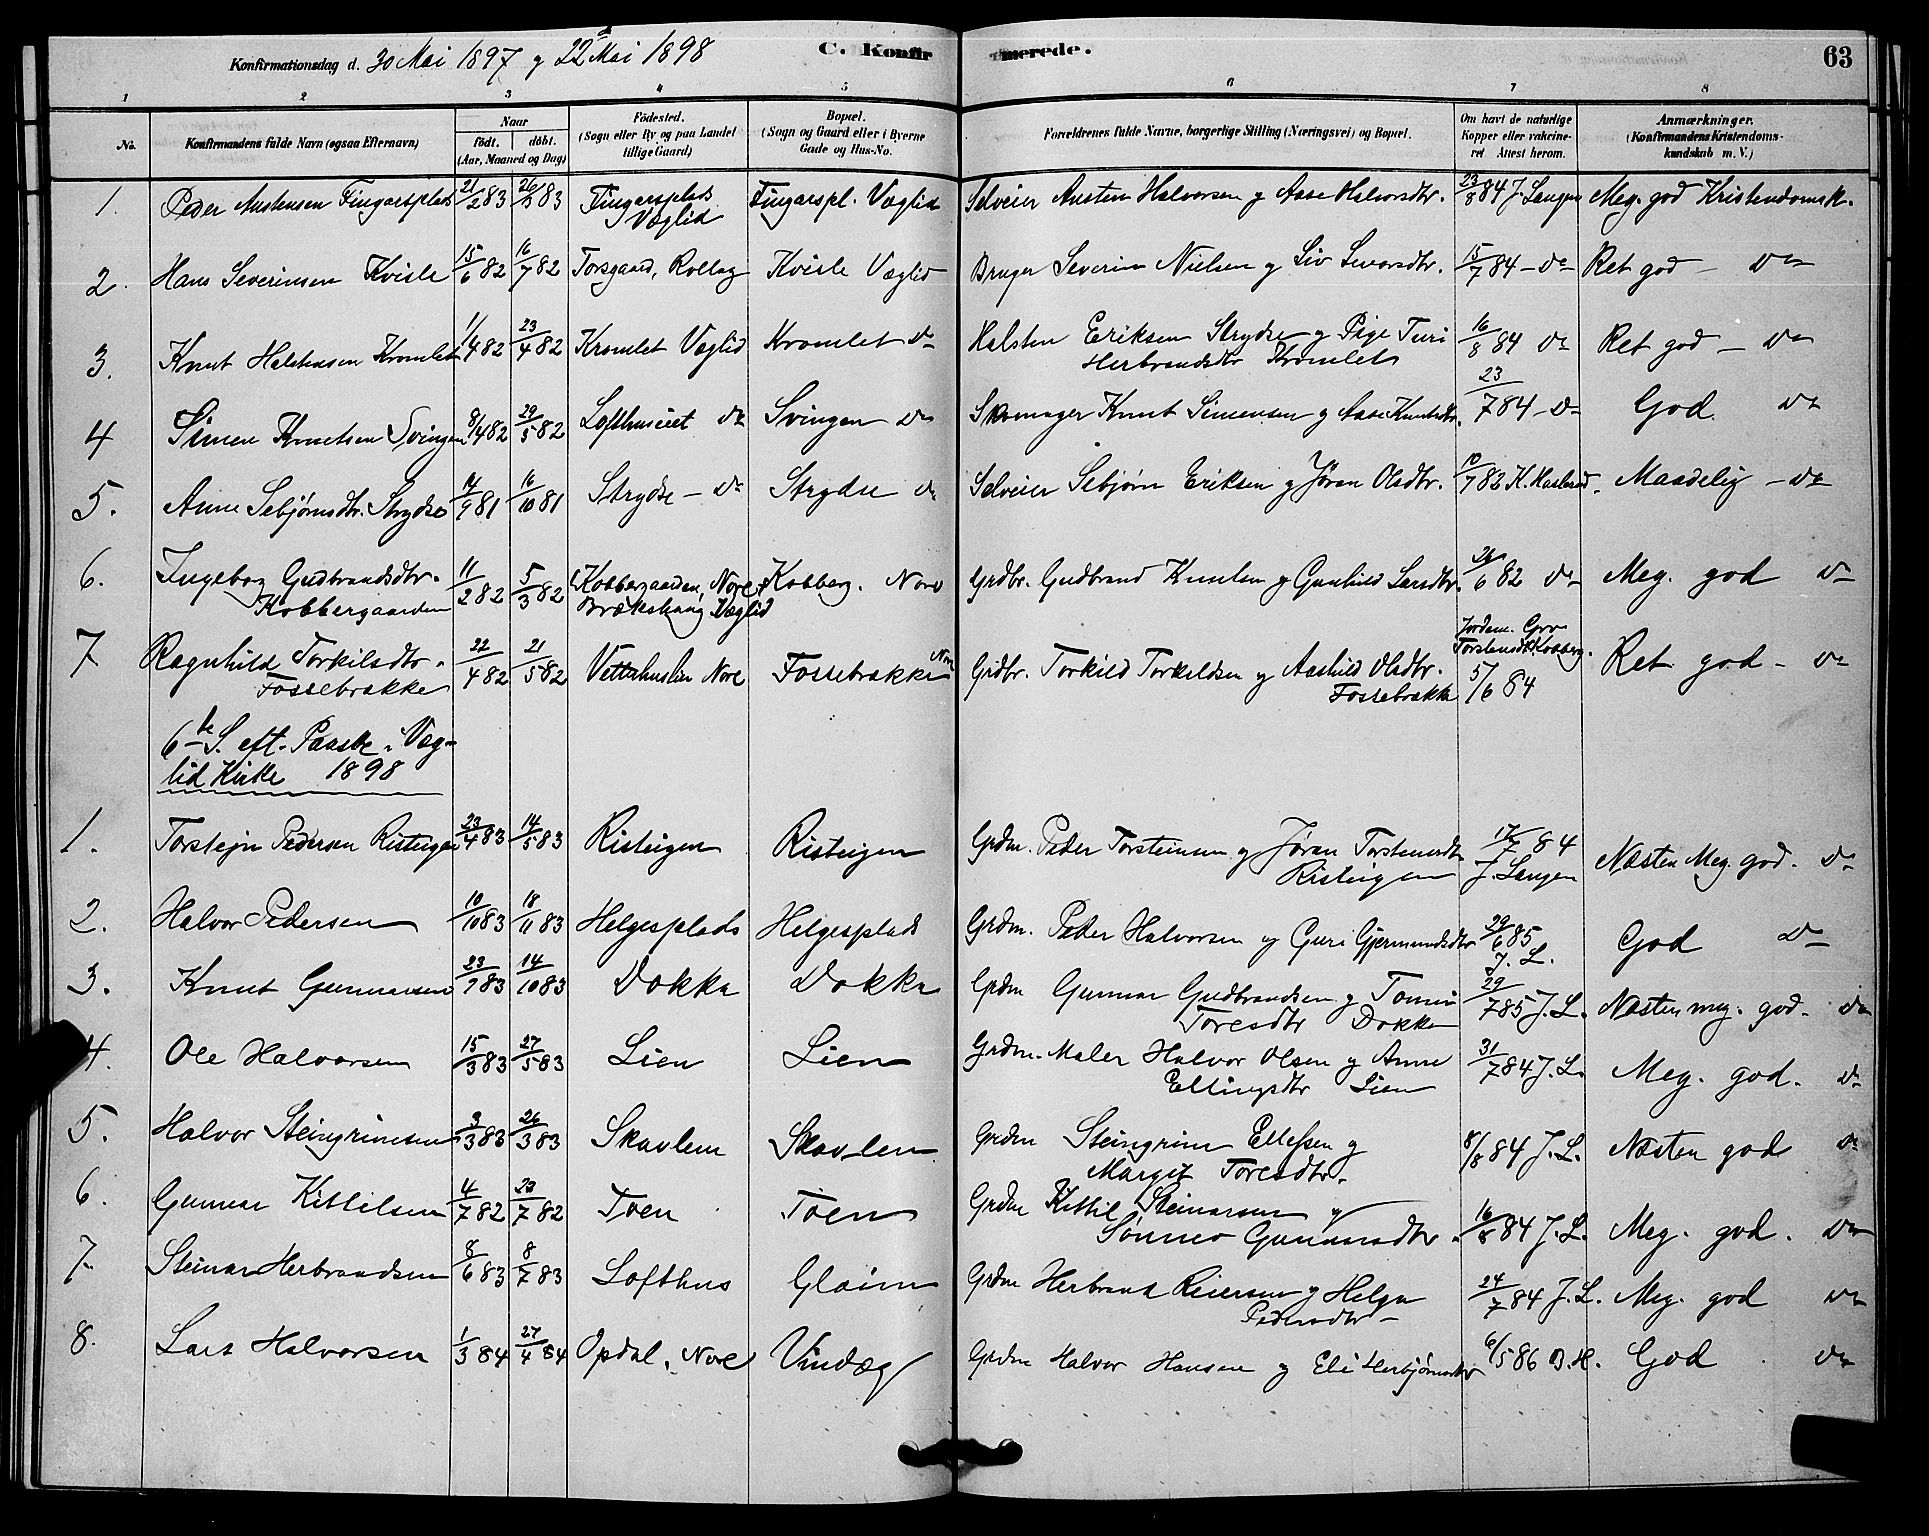 Konfirmationsdag d. 30 Mai 1897 og 22 Mai 1898
C. Konfirmerede.
63
1 2 3 4 5 6 7 8
No.
Konfirmandens fulde Navn (ogsaa Efternavn)
Naar
født. døbt.
(Aar, Maaned og Dag)
Fødested.
(Sogn eller By og paa Landet
tillige Gaard)
Bopæl.
(Sogn og Gaard eller i Byerne
Gade og Hus-No.
Forældrenes fulde Navne, borgerlige Stilling (Næringsvei) og Bopæl.
Om havt de naturlige
Kopper eller vakcine-
ret Attest herom.
Anmærkninger.
(Konfirmandens Kristendoms-
kundskab m. V.)
1. Peder Austensen Fingarsplads 21/2 83 26/3 83 Fingarsplads Væglid Fingarspl. Væglid Selveier Austen Halvorsen og Aase Halvorsdtr. 23/8 84 J. Langen Meg. god Kristendomsk.
2. Hans Severinsen Kvisle 15/6 82 16/7 82 Torsgaard, Rollag Kvisle Væglid Bruger Severin Nielsen og Liv Sevarsdtr. 15/7 84 - do Ret god - do
3. Knut Halstensen Kromlet 11/4 82 23/4 82 Kromlet Væglid Kromlet do Halsten Eriksen Strydse og Pige Turi
Herbrandsdtr Kromlet 16/8 84 do Ret god - do
4 Simen Knutsen Svingen 8/4 82 29/5 82 Lofthuseiet do Svingen do Skomager Knut Simensen og Aase Knutsdtr. 23/7 84 - do God. do
5. Anne Sebjørnsdtr. Strydse 14/9 81 16/10 81 Strydse - do Strydse do Selveier Sebjørn Eriksen og Jøran Olsdtr. 10/7 82 K. Haslerud. Maadelig - do
6. Ingebor Gudbrandsdtr.
Kobbergaarden 11/2 82 5/3 82 Kobbergaarden, Nore
Brækshaug Væglid Kobberg. Nore Grdbr. Gudbrand Knutsen og Gunhild Larsdtr. 24/6 82 do Meg. god do
7 Ragnhild Torkilsdtr.
Fossebrække 22/4 82 21/5 82 Vettahuslien Nore Fossebrække Nore Grdbr. Torkild Torkeldsen og Aashild Olsdtr.
Fossebrække Jordem. Gro
Torstensdtr. Kobberg.
5/6 84 Ret god - do
6te S. eft. Paaske, Væg-
lid Kirke 1898
1. Torstejn Pedersen Risteigen 23/4 83 14/5 83 Risteigen Risteigen Grdm. Peder Torsteinsen og Jøran Torstensdtr
Risteigen 17/7 84
J. Langen Næsten Meg. god. do
2. Halvor Pedersen 10/10 83 18/11 83 Helgesplads Helgesplads Grdm. Peder Halvorsen og Guri Gjermundsdtr 29/6 85
J. L. God do
3. Knut Gunnarsen 23/9 83 14/10 83 Dokka Dokka Grdm Gunnar Gudbrandsen og Tonni
Toresdtr Dokken 29/7 85 J. L. Næsten meg. god. do
4. Ole Halvorsen 15/3 83 27/5 83 Lien Lien Grdm. Maler Halvor Olsen og Anne
Ellingsdtr Lien 31/7 84 J. L. Meg. god. do
5. Halvor Steingrimsen 3/3 83 26/3 83 Skavlem Skavlem Grdm Steingrim Ellefsen og
Margit Toresdtr. 8/8 84 J. L. Næsten god do
6. Gunnar Kittilsen 4/7 82 23/7 82 Toen Toen Grdm Kittil Steinarsen og
Sønnev Gunnarsdtr. 16/8 84 J. L. Meg. god. do
7. Steinar Herbrandsen 8/6 83 8/7 83 Lofthus Glaim Grdm Herbrand Reiersen og Helga
Pedersdtr 24/7 84 J. L. Meg. god do
8. Lars Halvorsen 1/3 84 27/4 84 Opdal, Nore Vindæg Grdm Halvor Hansen og Eli Herbjørnsdtr 6/5 86 B. H. God do